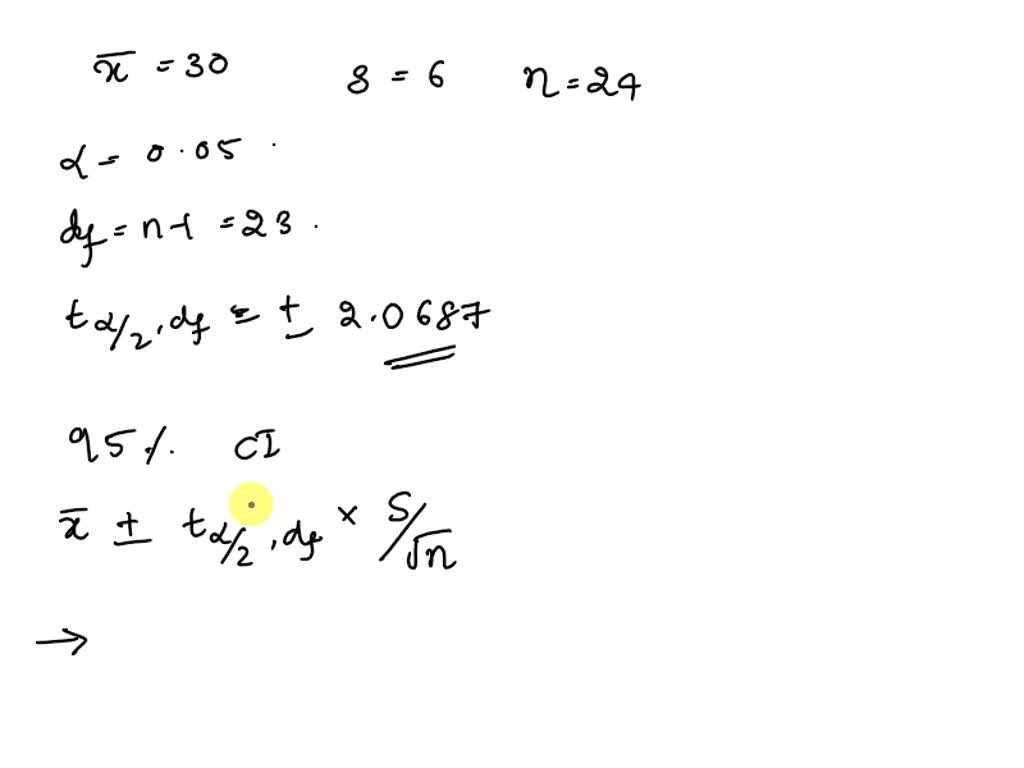 x̄ = 30 s = 6 n = 24
α = 0.05 .
df = n-1 = 23 .
tα/2, df = ± 2.0687
95%. CI
x̄ ± tα/2, df × S/√n
→